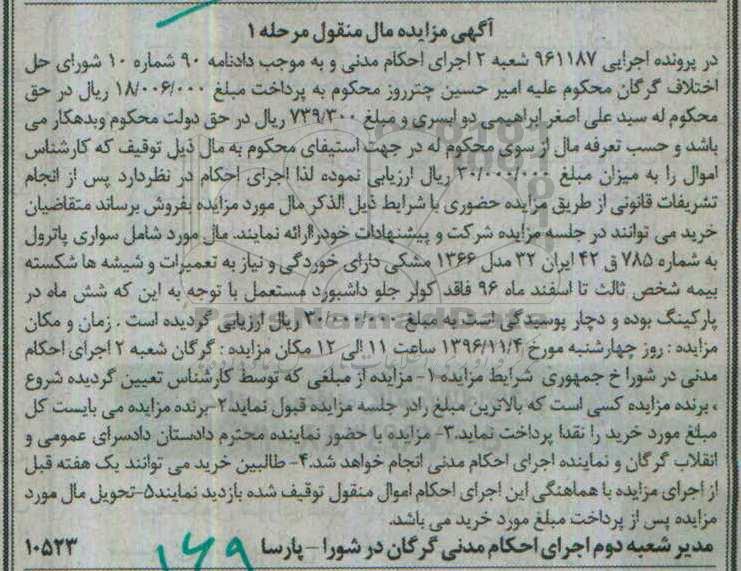 آگهی مزایده مال منقول مرحله ۱
در پرونده اجرایی ۹۶۱۱۸۷ شعبه ۲ اجرای احکام مدنی و به موجب دادنامه ۹۰ شماره ۱۰ شورای حل
اختلاف گرگان محکوم علیه امیر حسین چترروز محکوم به پرداخت مبلغ ۱۸/۰۰۶/۰۰۰ ریال در حق
محکوم له سید علی اصغر ابراهیمی دو ایسری و مبلغ ۷۳۹/۳۰۰ ریال در حق دولت محکوم وبدهکار می
باشد و حسب تعرفه مال از سوی محکوم له در جهت استیفای محکوم به مال ذیل توقیف که کارشناس
اموال را به میزان مبلغ ۳۰/۰۰۰/۰۰۰ ریال ارزیابی نموده لذا اجرای احکام در نظردارد پس از انجام
تشریفات قانونی از طریق مزایده حضوری با شرایط ذیل الذکر مال مورد مزایده بفروش برساند متقاضیان
خرید می توانند در جلسه مزایده شرکت و پیشنهادات خودراارائه نمایند. مال مورد شامل سواری پاترول
به شماره ۷۸۵ ق ۴۲ ایران ۳۲ مدل ۱۳۶۶ مشکی دارای خوردگی و نیاز به تعمیرات و شیشه ها شکسته
بیمه شخص ثالث تا اسفند ماه ۹۶ فاقد کولر جلو داشبورد مستعمل با توجه به این که شش ماه در
پارکینگ بوده و دچار پوسیدگی است به مبلغ ۳۰/۰۰۰/۰۰۰ ریال ارزیابی گردیده است . زمان و مکان
مزایده : روز چهارشنبه مورخ ۱۳۹۶/۱۱/۴ ساعت ۱۱ الی ۱۲ مکان مزایده : گرگان شعبه ۲ اجرای احکام
مدنی در شورا خ جمهوری شرایط مزایده ۱- مزایده از مبلغی که توسط کارشناس تعیین گردیده شروع
، برنده مزایده کسی است که بالاترین مبلغ رادر جلسه مزایده قبول نماید.۲-برنده مزایده می بایست کل
مبلغ مورد خرید را نقدا پرداخت نماید.۳- مزایده با حضور نماینده محترم دادستان دادسرای عمومی و
انقلاب گرگان و نماینده اجرای احکام مدنی انجام خواهد شد.۴- طالبین خرید می توانند یک هفته قبل
از اجرای مزایده با هماهنگی این اجرای احکام اموال منقول توقیف شده بازدید نمایند۵-تحویل مال مورد
مزایده پس از پرداخت مبلغ مورد خرید می باشد.
مدیر شعبه دوم اجرای احکام مدنی گرگان در شورا - پارسا ۱۰۵۲۳
۱۶۹
ParsNamadData